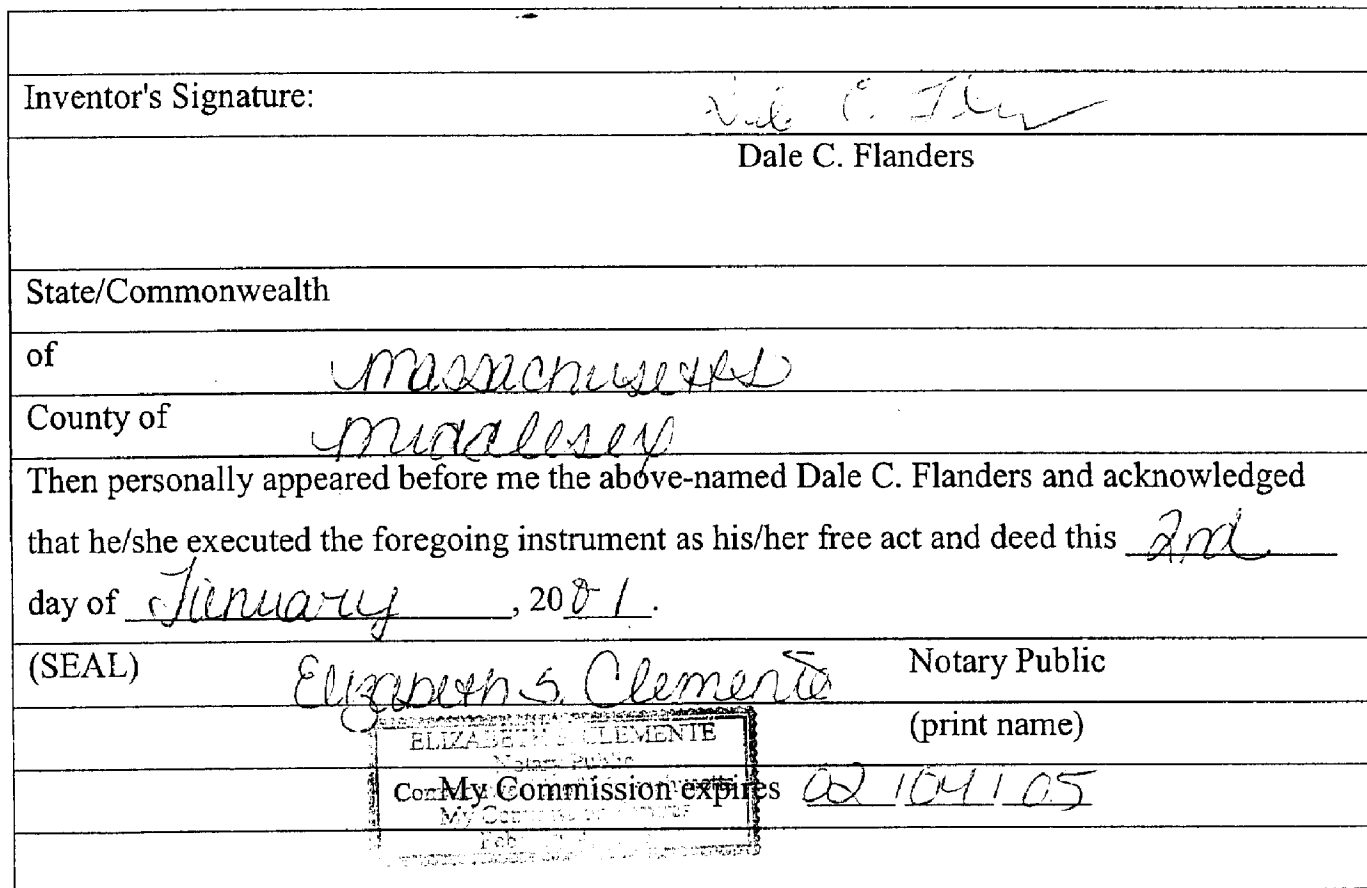 Inventor's Signature:
Dale C. Flanders
State/Commonwealth
of Massachusetts
County of Middlesex
Then personally appeared before me the above-named Dale C. Flanders and acknowledged
that he/she executed the foregoing instrument as his/her free act and deed this 2nd
day of January, 2001.
(SEAL) Elizabeth S. Clemente Notary Public
(print name)
ELIZABETH S. CLEMENTE
Notary Public
My Commission expires 02/04/05